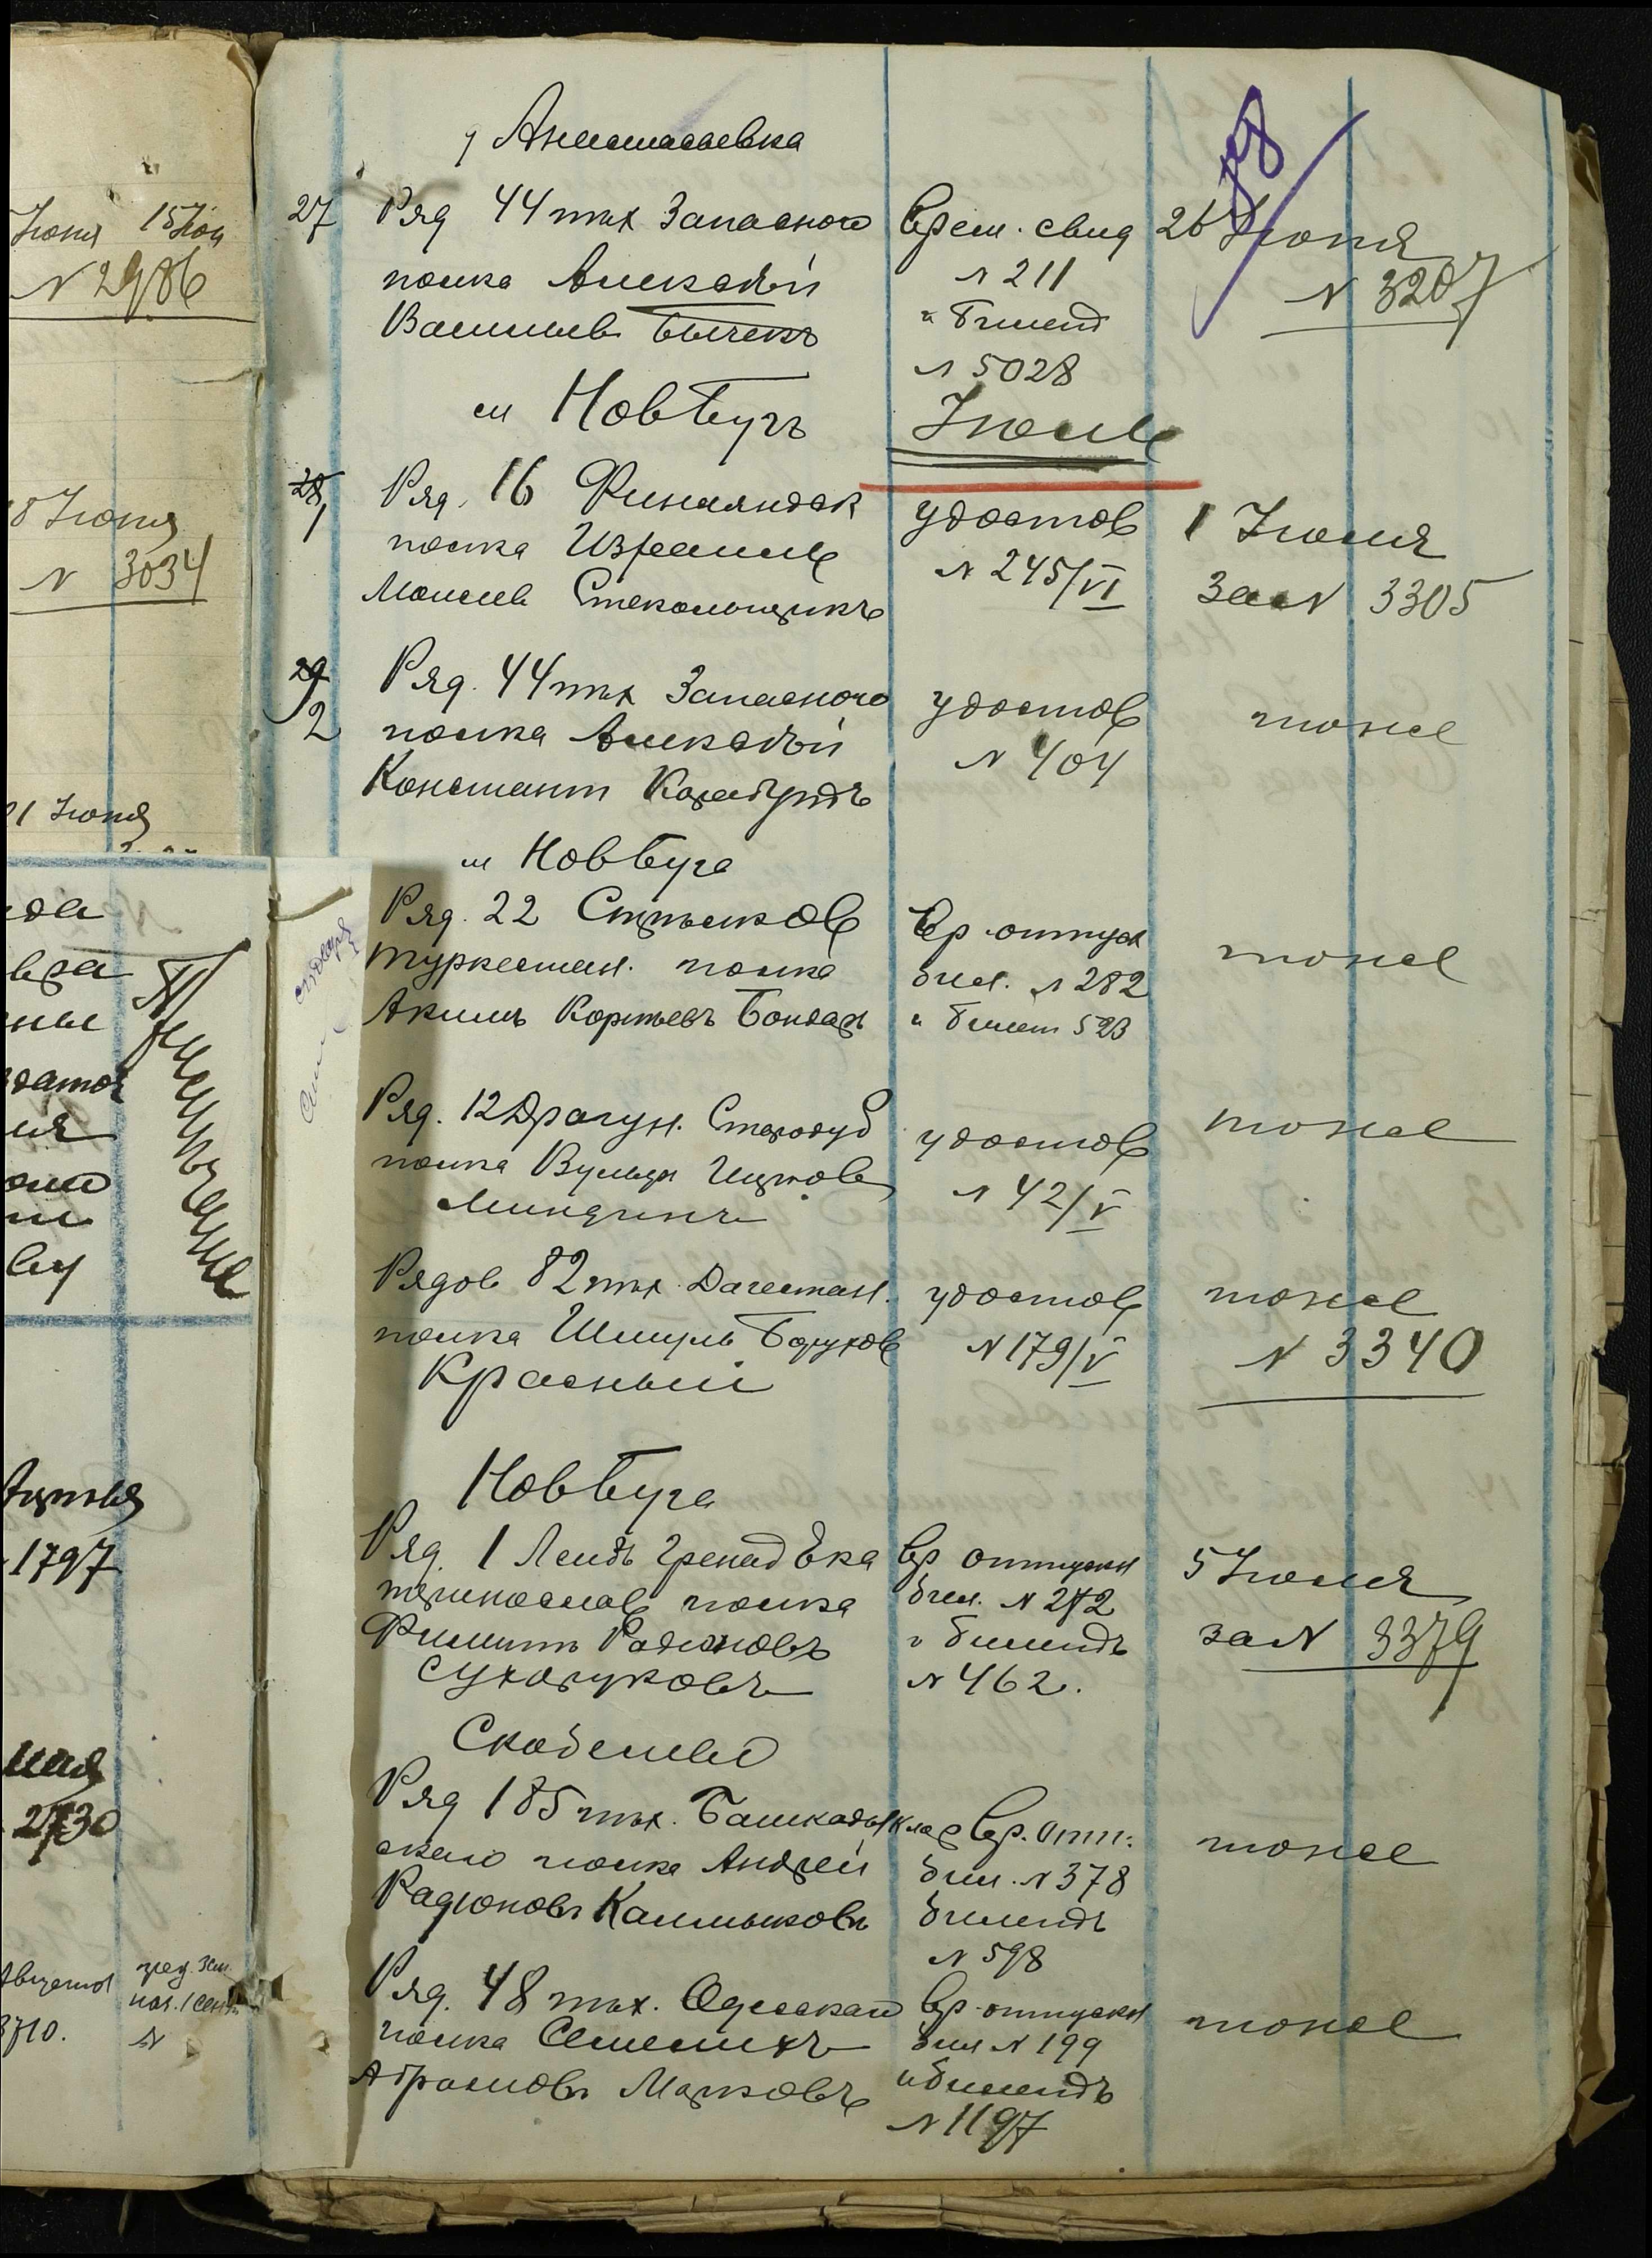 Июня 15 Июн
N 2986
8 Июня
N 3034
21 Июня
1797
2730
3710.
д Анастасьевка
27 Ряд 44 тых Запасного
полка Алексѣй
Васильев Бычекъ
Врем. свид
N 211
и билетъ
N 5028
26 Июня
N 3207
м Нов Бугъ
Июль
28
1
Ряд. 16 Финляндск
полка Израиль
Моисеев Стекольщикъ
удостов
N 245/VI
1 Июля
За N 3305
29
2
Ряд. 44 тых Запасного
полка Алексѣй
Констант
удостов
N 404
тоже
м Нов Буга
Ряд. 22 Стрѣлков
Туркестан. полка
Акимъ Бондарь
Вр. отпуск
бил. N 282
и билет 523
тоже
Ряд. 12 Драгун. Стародуб
полка
удостов
N 42/V
тоже
Рядов 82 тых Дагестан.
полка Шмуль Борухов
Красный
удостов
N 179/V
тоже
N 3340
Нов Буга
Ряд. 1 Лейбъ Гренад Ека
теринослав полка
Филиппъ Радионовъ
Сухоруковъ
Вр отпускн
бил. N 272
и билетъ
N 462.
5 Июля
за N 3379
Скобелево
Ряд 185 тых. Башкадыклар
скаго полка Андрей
Радионовъ Калмыковъ
Вр. отп.
бил. N 378
билетъ
N 598
тоже
Ряд. 48 тых. Одесскаго
полка
Абрамовъ Марковъ
Вр. отпускн
бил N 199
и билетъ
N 1197
тоже